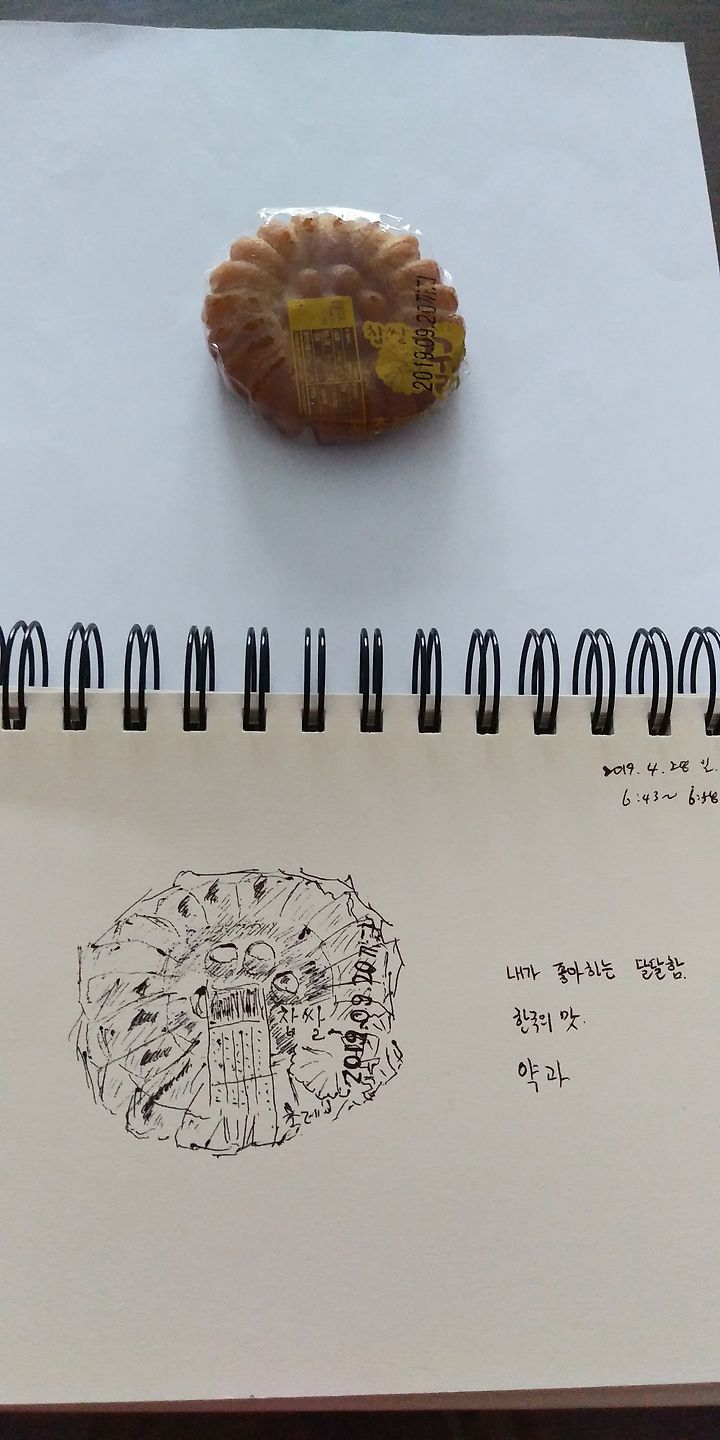 찹쌀
2019.09.20까지
2019. 4. 28 일.
6:43~ 6:58
내가 좋아하는 달달함.
한국의 맛.
약과
찹쌀
2019.09.20까지